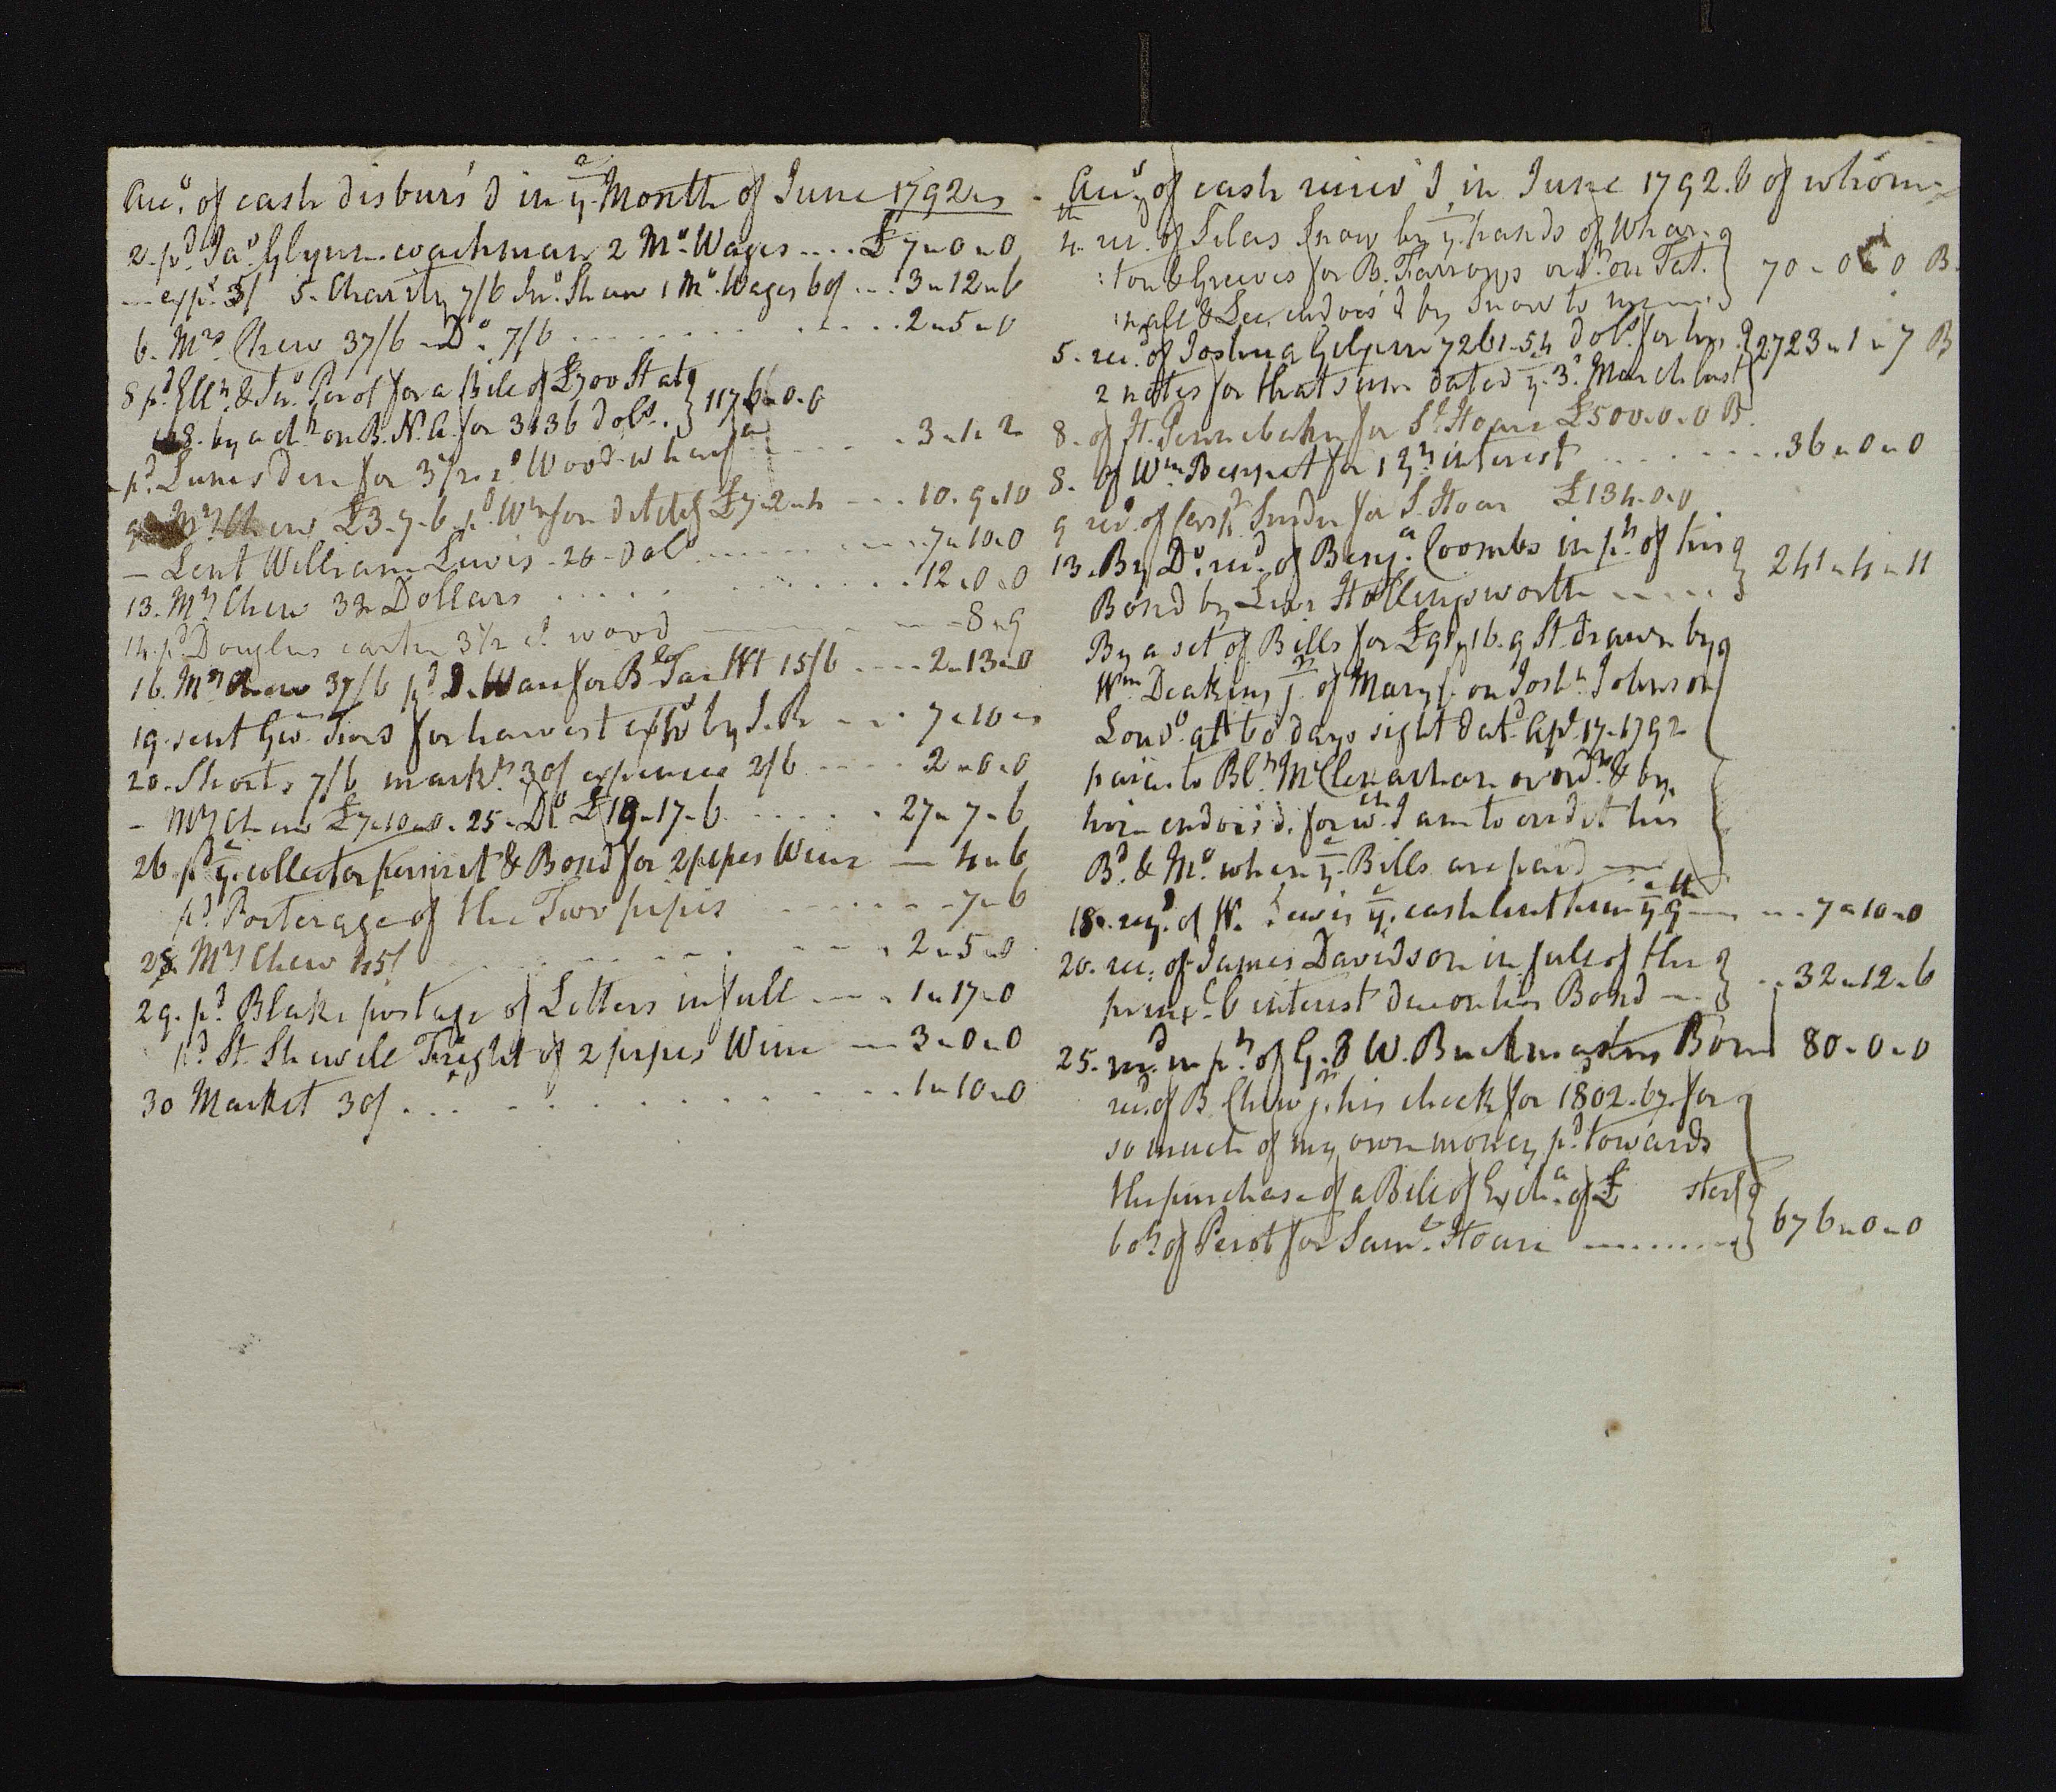 Accᵗ. of cash disburs'd in yᵉ. Month of June 1792
2. pᵈ. Jaˢ. Glynn coachman 2 Mᵒ. Wages .... £ 7 " 0 " 0
expˢ. 3/ 5. Charity 7/6 Jnᵒ. Shaw 1 Mᵒ. Wages 60/ ... 3 " 12 " 6
6. Mʳˢ. Chew 37/6 - Dᵒ. 7/6 .......... 2 " 5 " 0
8 pᵈ. Ellⁿ. & Jnᵒ. Perot for a Bill of £700 St at
168. by a chᵏ on B. N. A. for 3136 dolˢ. } 1176 " 0 " 0
pᵈ. Lumsden for 3 1/2 cᵈ. Wood wharfᵃ ..... 3 " 1 " 2
9 Mʳˢ Chew £3-7-6. pᵈ. Wᵐ for ditchᵍ £7-2-4 ... 10 " 9 " 10
- Lent William Lewis - 20 - dolˢ ........ 7 " 10 " 0
13. Mʳˢ Chew 32 Dollars ......... 12 " 0 " 0
14. pᵈ Douglas carter 3 1/2 cᵈ. wood ——— 8 " 9
16. Mʳˢ Chew 37/6 pᵈ D. Ware for Bˡˢ Tar Wt 15/6 .... 2 " 13 " 0
19. sent Geo. Ford for harvest expˢ by J. R. ... 7 " 10 "
20. Shorts 7/6 markᵗ. 30/ expences 2/6 ..... 2 " 0 " 0
- Mʳˢ Chew £7 " 10 " 0. 25 - Dᵒ £19 - 17 - 6 ..... 27 " 7 " 6
26 pᵈ yᵉ. collector permit & Bond for 2 pipes Wine — 4 " 6
pᵈ. Porterage of the Two pipes ....... 7 " 6
28. Mʳˢ Chew 45/ ......... 2 " 5 " 0
29. pᵈ. Blake postage of Letters in full .... 1 " 17 " 0
pᵈ St. Shewell Freight of 2 pipes Wine — 3 " 0 " 0
30 Market 30/ ............ 1 " 10 " 0
Accᵗ. of cash receiv'd in June 1792. & of whom
4ᵗʰ. recᵈ. of Silas Snow by yᵉ. hands of Whar
:ton & Greeves for B. Farrows ordʳ. on Tat.
:nall & Lee, endors'd by Snow to me } 70 " 0 " 0 B.
5. recᵈ. of Joshua Gilpin 7261-54 dolˢ. for his
2 notes for that sum dated yᵉ. 3ᵈ. March last } 2723 " 1 " 7 B
8. of H. Pennebaker for Sˡ. Hoare £500 " 0 " 0 B.
8. of Wᵐ. Bennet for 1 yʳˢ interest ....... 36 " 0 " 0
9 recᵈ. of Snyder for S. Hoar £134 " 0 " 0
13. By Dᵒ. recᵈ. of Benjᵃ. Coombs in pᵗ. of his
Bond by Levi Hollingsworth ..... } 241 " 4 " 11
By a set of Bills for £97,16.9 St. drawn by
Wᵐ Deakins jʳ. of Maryˡ. on Joshᵃ Johnson
Londᵒ. at 60 days sight datᵈ. Apˡ. 17. 1792
paiᵃ. to Blʳ. McClenachan or ordʳ. & by
him endors'd. for wᶜʰ. I am to credit his
Bᵈ. & Mᵒ. when yᵉ. Bills are paid —
18. recᵈ. of W. Lewis yᵉ. cash lent him yᵉ 9ᵗʰ ..... 7 " 10 " 0
20. recᵈ. of James Davidson in full of the
prinˡ. & interest due on his Bond — } .. 32 " 12 " 6
25. recᵈ. in pᵗ. of G. & W. Buckmasters Bond 80 " 0 " 0
recᵈ. of B. Chew jʳ. his check for 1802.67. for
so much of my own money pᵈ. towards
the purchase of a Bill of Exchᵃ. of £ sterˡᵍ
boᵗ. of Perot for Samˡ. Hoare ........ } 676 " 0 " 0